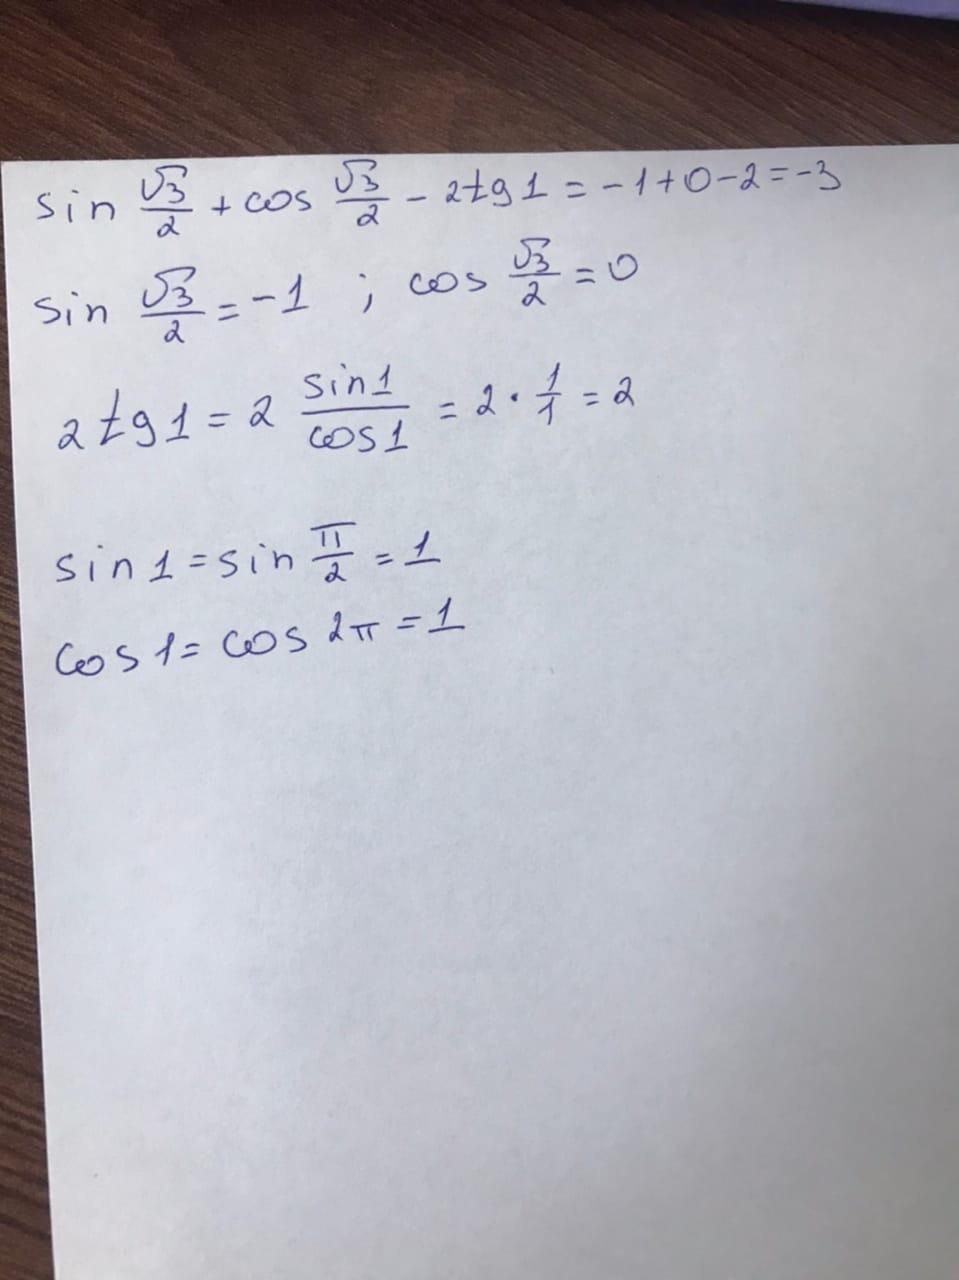 sin √3/2 + cos √3/2 - 2tg1 = -1+0-2=-3
sin √3/2 = -1 ; cos √3/2 = 0
2tg1 = 2 sin1/cos1 = 2 · 1/1 = 2
sin1 = sin π/2 = 1
cos1 = cos 2π = 1